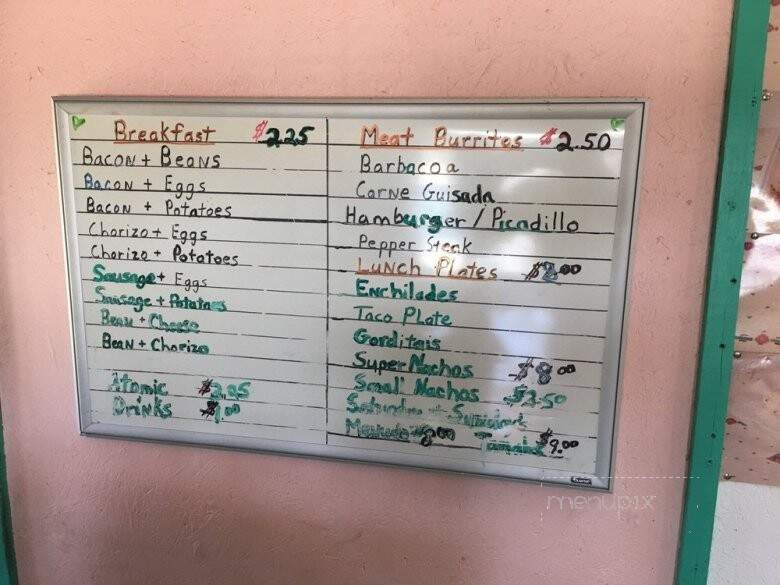 Breakfast $2.25
Bacon + Beans
Bacon + Eggs
Bacon + Potatoes
Chorizo + Eggs
Chorizo + Potatoes
Sausage + Eggs
Sausage + Potatoes
Bean + Cheese
Bean + Chorizo
Atomic
Drinks $1.00
Meat Burritos $2.50
Barbacoa
Carne Guisada
Hamburger / Picadillo
Pepper Steak
Lunch Plates $8.00
Enchilades
Taco Plate
Gorditais
Super Nachos $8.00
Small Nachos $3.50
Menudo 8.00 Tamales $9.00
menupix